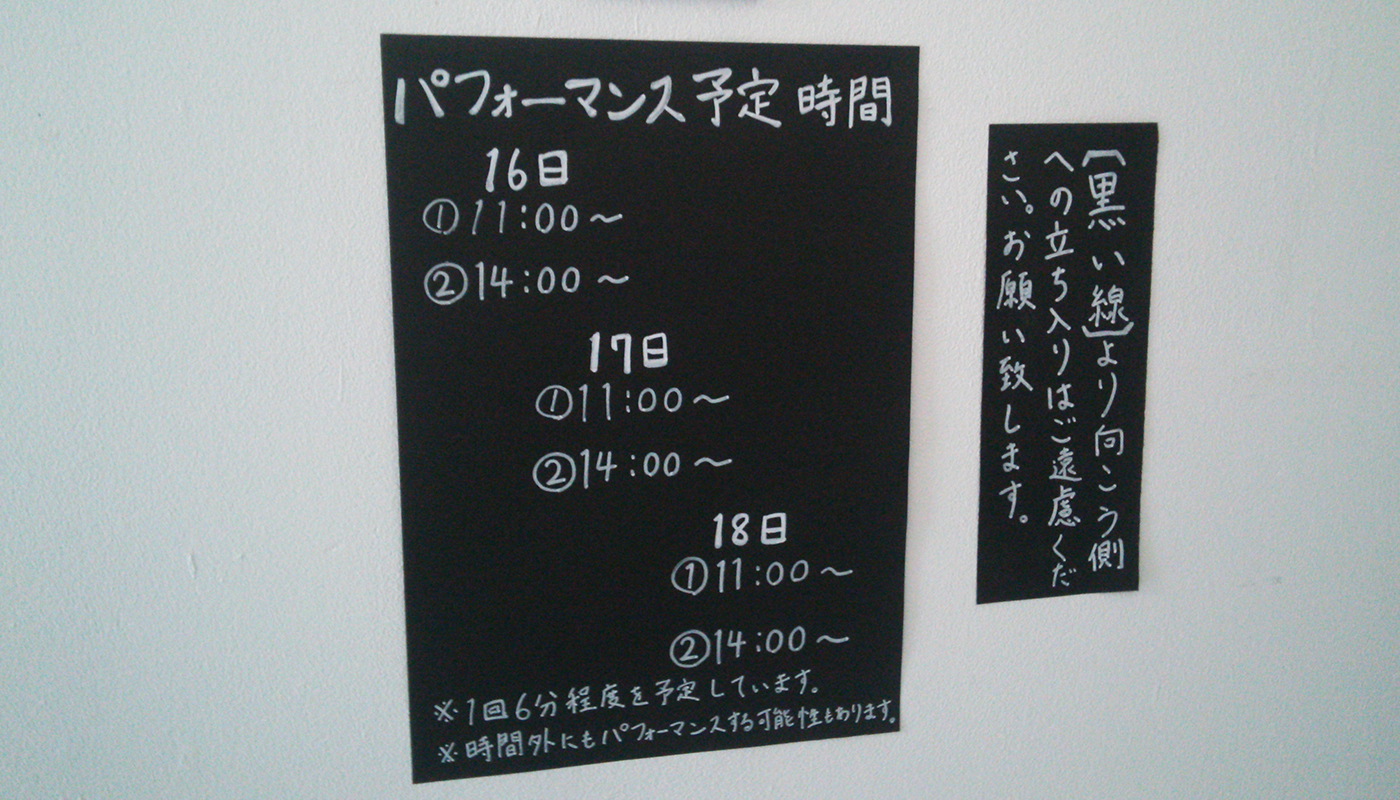 パフォーマンス予定時間
16日
①11:00〜
②14:00〜
17日
①11:00〜
②14:00〜
18日
①11:00〜
②14:00〜
※1回6分程度を予定しています。
※時間外にもパフォーマンスする可能性もあります。
[黒い線]より向こう側
への立ち入りはご遠慮くだ
さい。お願い致します。